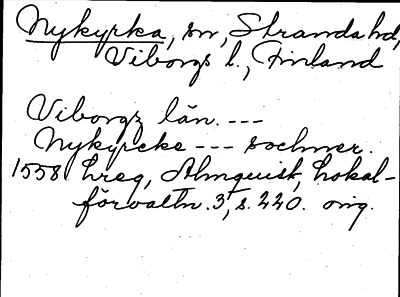 Nykyrka, sn, Stranda hd,
Viborgs l., Finland
Viborgz län. ---
Nykyrcke --- sochner.
1558 Lreg, Almquist, Lokal-
förvaltn. 3, s. 220. orig.